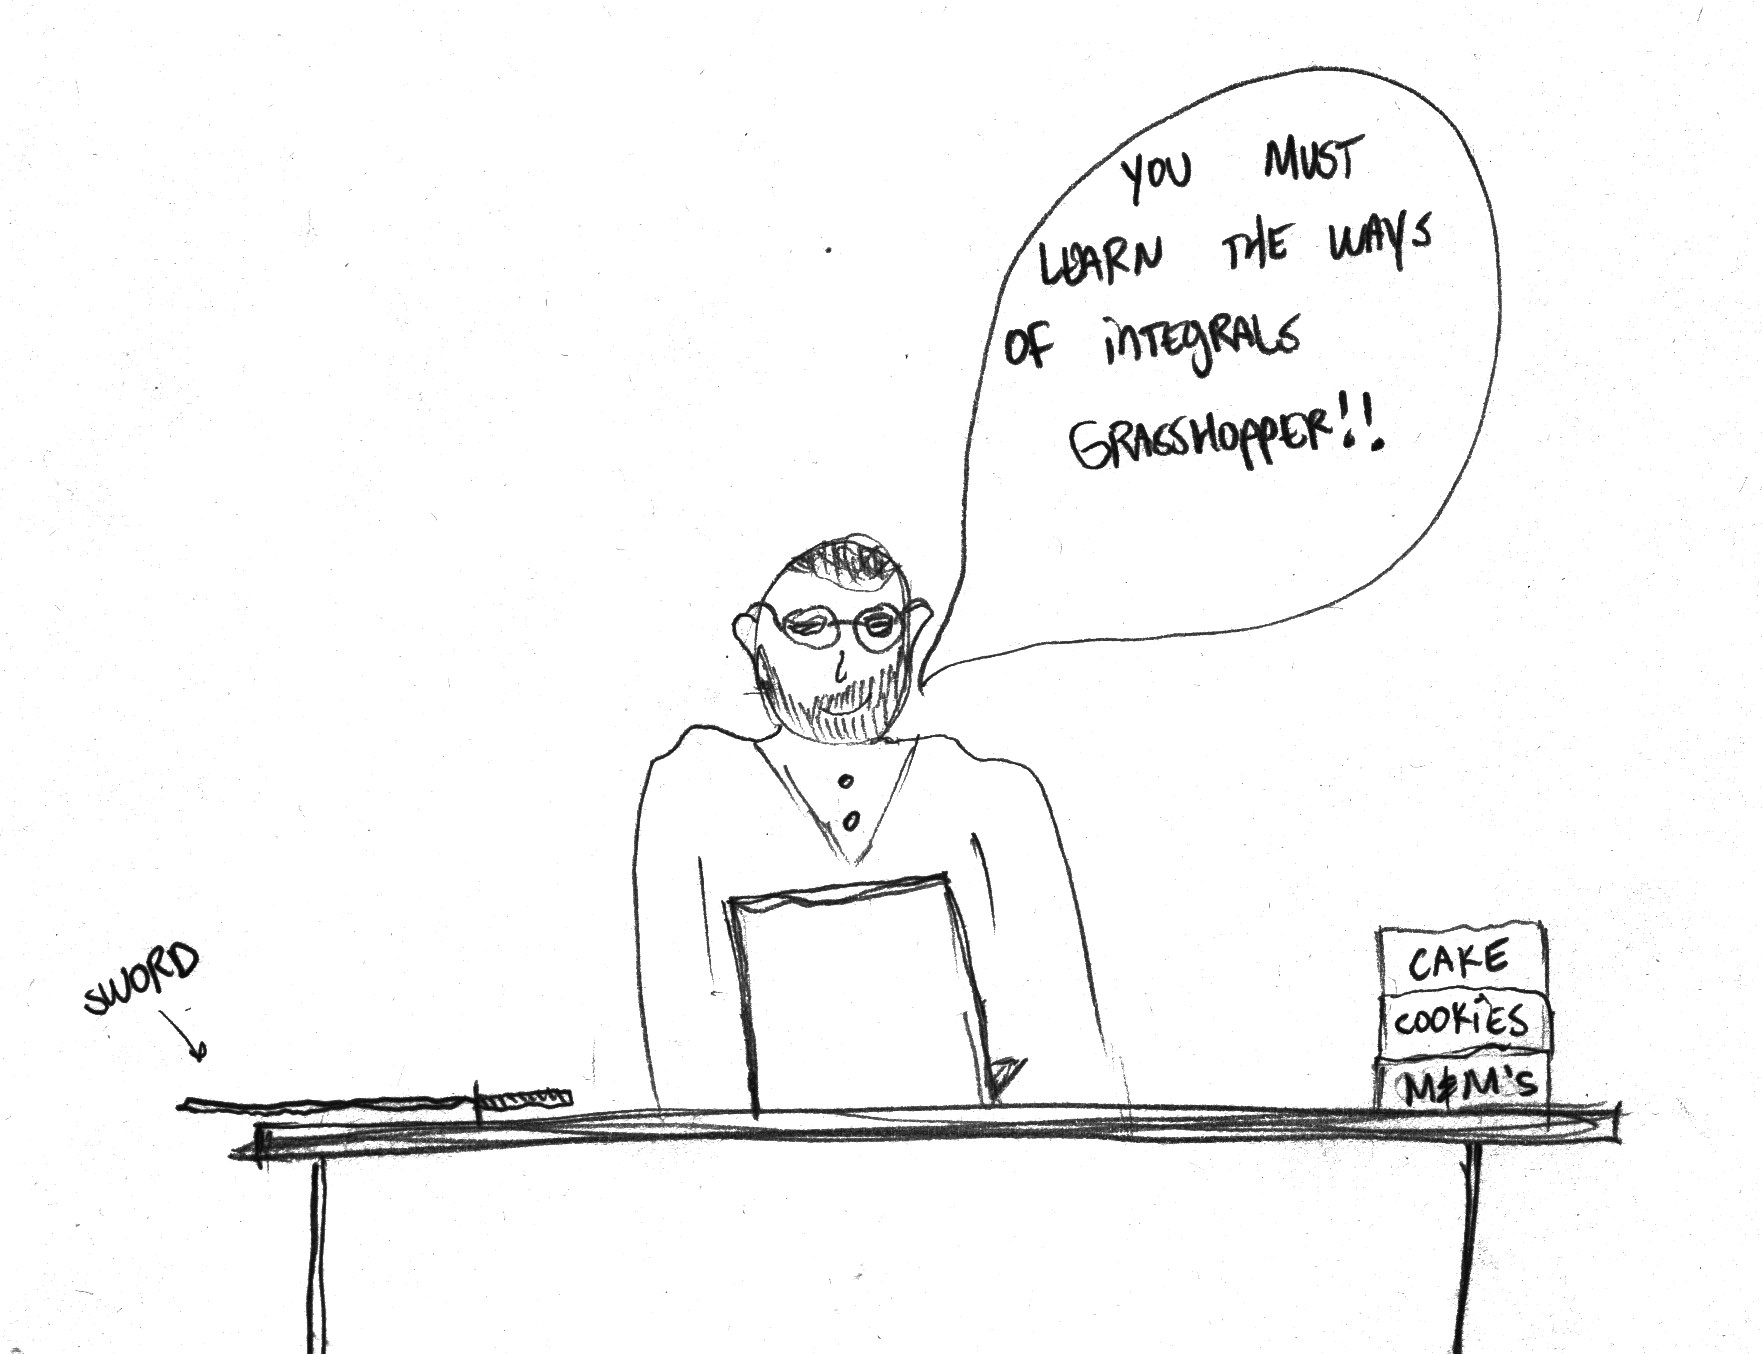 YOU MUST
LEARN THE WAYS
OF iNTEGRALS
GRASSHOPPER!!
SWORD
CAKE
COOKiES
M&M'S